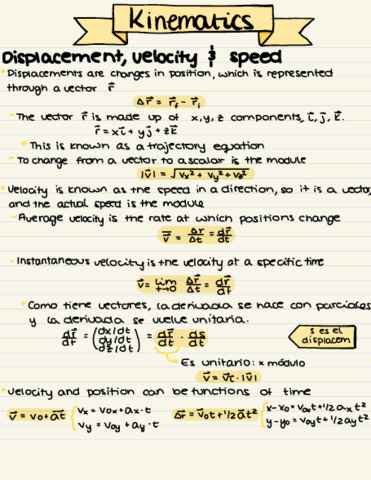 Kinematics
Displacement, velocity & speed
• Displacements are changes in position, which is represented
through a vector r⃗
Δr⃗ = r⃗f - r⃗i
- The vector r⃗ is made up of x, y, z components, i⃗, j⃗, k⃗.
r⃗ = xi⃗ + yj⃗ + zk⃗
+ This is known as a trajectory equation
- To change from a vector to a scalar is the module
|v⃗| = √vx² + vy² + vz²
• Velocity is known as the speed in a direction, so it is a vector
and the actual speed is the module
- Average velocity is the rate at which positions change
v⃗ = Δr⃗/Δt = dr⃗/dt
- Instantaneous velocity is the velocity at a specific time
v⃗ = lim t→0 Δr⃗/Δt = dr⃗/dt
+ Como tiene vectores, la derivada se hace con parciales
y la derivada se vuelve unitaria.
dr⃗/dt = (dx/dt dy/dt dz/dt) = dr⃗/dt · ds/dt
s es el
displacem
↳ Es unitario: x módulo
v⃗ = v⃗t · |v⃗|
• Velocity and position can be functions of time
v⃗ = v⃗0 + a⃗t { vx = v0x + ax · t
vy = v0y + ay · t
Δr⃗ = v⃗0t + 1/2 a⃗t² { x-x0 = v0xt + 1/2 axt²
y-y0 = v0yt + 1/2 ayt²